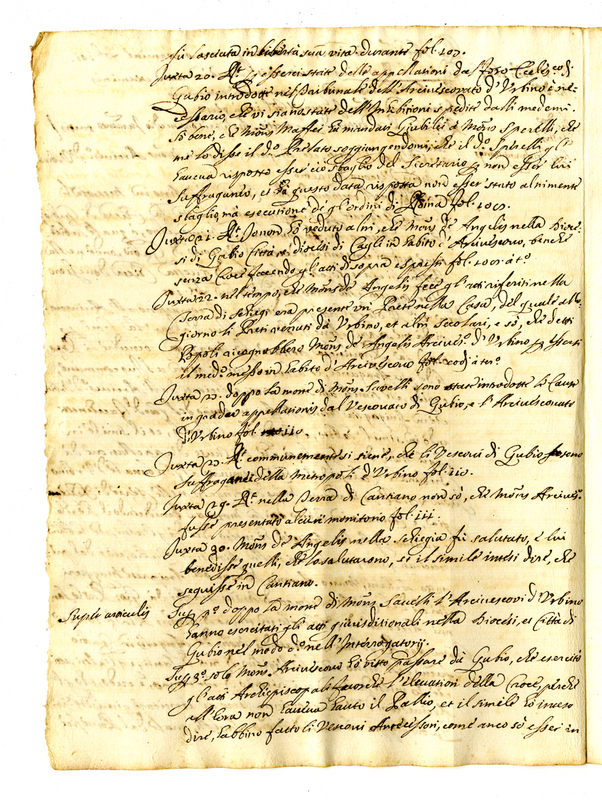 fù lasciata in libertà sua vita durante fol. 107.
Juxta 20. R. esserci state delle appellationi dal foro Eccl.co di
Gubio introdotte nel Tribunale dell'Arcivescovato d'Urbino è ne-
cessario, che vi sia no state dell'Inibitioni spedite dalli medemi.
Sò bene, che Mons. Maffei hà mandati Giubilei à Mons. Sperelli, che
me lo disse il d.o Prelato soggiungendomi, che il d.o Sperelli gl'
haveva risposto esser ciò sbaglio del Secretario non esser lui
suffraganeo, et à questo data risposta non esser stato altrimente
sbaglio mà esecutione de gl'ordini di Roma fol. 109.
Juxta 21. R. Jo non hò veduto altri, che Mons. de Angelis nella Dioce-
si di Gubio Città et diocesi di Cagli in habito d'Arcivescovo, benche
senza Croce facendo gl'atti di sopra espressi fol. 109 à t.o
Juxta 22. nel tempo, che Mons. de Angelis fece gl'atti riferiti nella
Serra di Schiegi era presente un Prete nella Casa, del quale all-
giorno li Preti venuti da Urbino, et altri secolari, e sò, che detti
Popoli
il med.mo in habito d'Arcivescovo fol. eod. à ter.o
Juxta 23. doppo la morte di Mons. Savelli sono state introdotte le Cause
in gradu appellationis dal Vescovato di Gubio, e l'Arcivescovato
d'Urbino fol. 110.
Juxta 27. R. communemente si tiene, che li Vescovi di Gubio siano
suffraganei della Metropoli d'Urbino fol. 110.
Juxta 29. R. nella Serra di Cantiano non sò, che Mons. Arcives.
fusse presentato alcun monitorio fol. 111.
Juxta 30. Mons. de Angelis nella schiegia fù salutato, e lui
benedisse quelli, che lo salutarono, et il simile intesi dire, che
seguisse in Cantiano.
Super articulis
Sup. p.o doppo la morte di Mons. Savelli l'Arcivescovi d'Urbino
hanno esercitati gli atti giurisditionali nella Diocesi, et Città di
Gubio nel modo d.o nell'Interrogatorij.
Sup. 3.o solo Mons. Arcivescovo hò visto passare da Gubio, che esercitò
gl'atti Archiepiscopali fuorche l'elevation della Croce, perche
all'hora non haveva havuto il Pallio, et il simile hò inteso
dire, habbino fatto li Vescovi Antecessori, come anco sò esser in